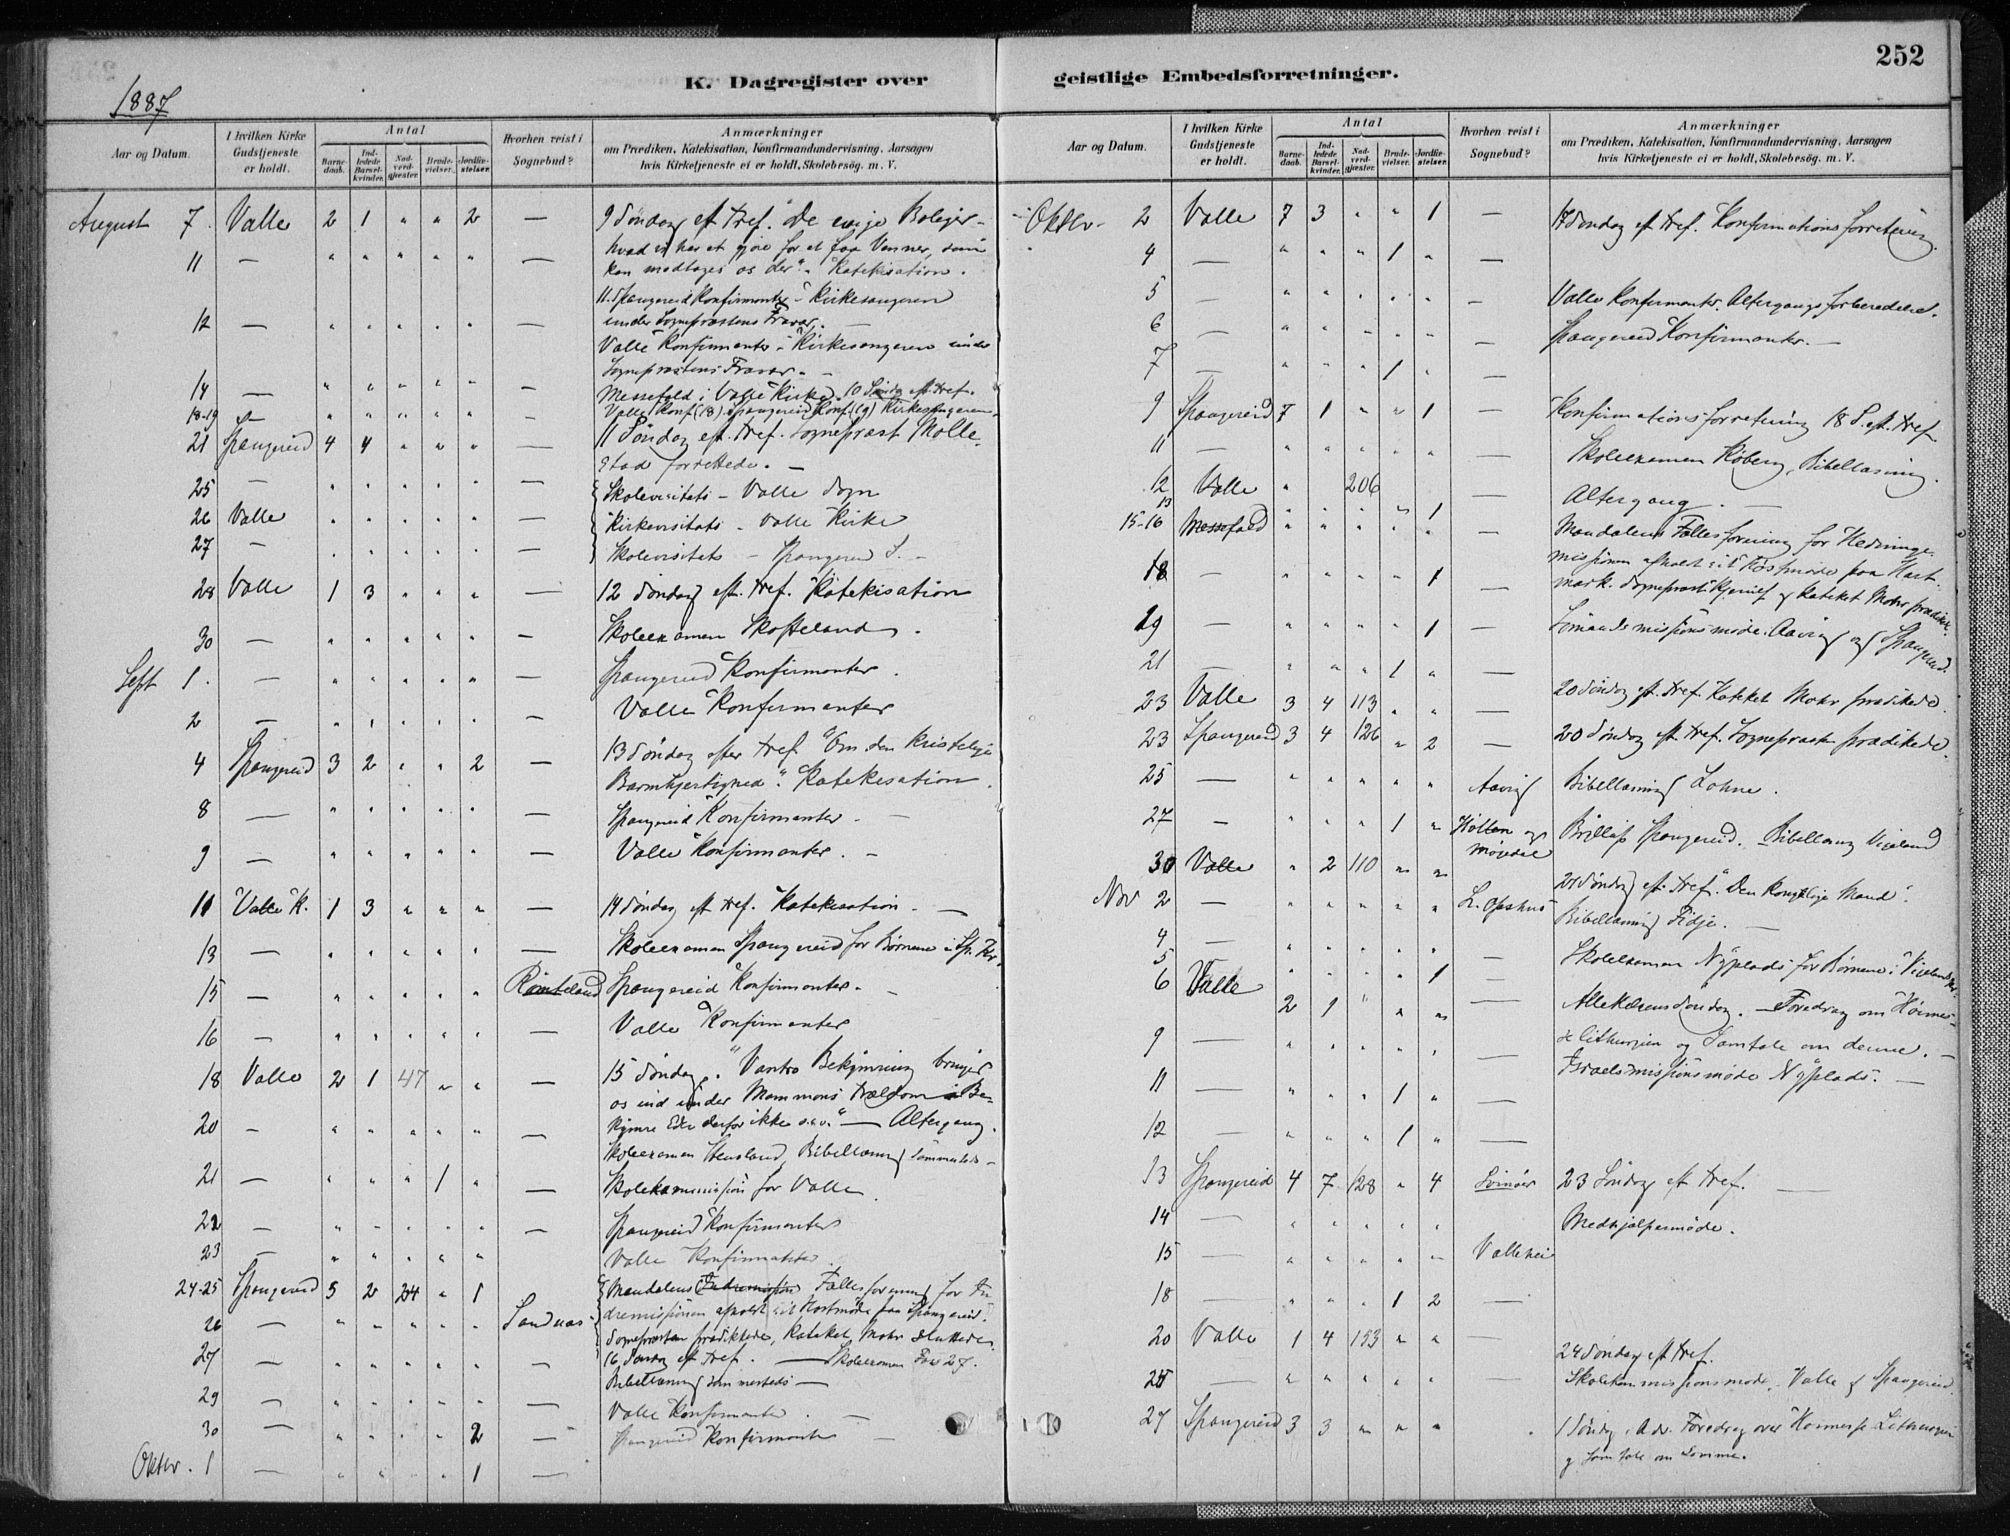 252
K. Dagregister over geistlige Embedsforretninger.
1887
Aar og Datum.
I hvilken Kirke Gudstjeneste er holdt.
Antal
Barnedaab.
Indledede Barselkvinder.
Nadverdgjæster.
Brudevielser.
Jordfæstelser.
Hvorhen reist i Sognebud?
Anmærkninger
om Prædiken, Katekisation, Konfirmandundervisning, Aarsagen
hvis Kirketjeneste ei er holdt, Skolebesög. m. V.
August 7. Valle 2 1 " " 2 — 9 Søndag eft. Tref. "De evige Boliger -
hvad vi har at gjøre for at faa Venner, som
kan modtages os der". Katekisation.
11 — " " " " " — 11. Spangereid Konfirmanter - Kirkesangeren
under Sognepræstens Fravær. —
12 — " " " " " — Valle Konfirmanter - Kirkesangeren under
Sognepræstens Fravær. -
14 — " " " " " — Messefald i Valle Kirke. 10 Søndag eft. Tref.
18-19 — " " " " " Valle Konf. (18). Spangereid Konf. (19) Kirkesangeren.
21 Spangereid 4 4 " " " 11 Søndag eft. Tref. Sognepræst Molle-
stad forrettede. —
25 — " " " " " Skolevisitats - Valle Sogn
26 Valle " " " " " Kirkevisitats - Valle Kirke
27 — " " " " " Skolevisitats - Spangereid S. -
28 Valle 1 3 " " " — 12 Søndag eft. Tref. Katekisation
30 — " " " " " — Skoleexamen Skofteland.
Sept 1. — " " " " " — Spangereid Konfirmanter.
2 — " " " " " — Valle Konfirmanter
4 Spangereid 3 2 " " 2 — 13 Søndag efter Tref. "Om den kristelige
Barmhjertighed". Katekisation.
8 — " " " " " — Spangereid Konfirmanter. -
9 — " " " " " — Valle Konfirmanter. -
11 Valle K. 1 3 " " " — 14 Søndag eft. Tref. Katekisation. —
13 — " " " " " — Skoleexamen Spangereid for Børnene i Sp. Kr.
15 — " " " " " Rømteland Spangereid Konfirmanter. -
16 — " " " " " — Valle Konfirmanter
18 Valle 2 1 47 " " — 15 Søndag. "Vantro Bekymring bringer
os ind under Mammons Trældom. Be-
kymre Eder derfor ikke o.s.v." — Altergang.
20 — " " " " " — Skoleexamen Stensland, Bibellæsning sammesteds -
21 — " " " 1 " — Skolekommission for Valle.
22 — " " " " " — Spangereid Konfirmanter
23 — " " " " " Valle Konfirmanter
24-25 Spangereid 5 2 24 " 1 Mandalens Indremission Fællesforening for In-
dremissionen afholdt sit Høstmøde paa Spangereid.
26 — " " " " " Sandnæs Sognepræsten prædikede, Kateket Mohr sluttede.
16 Søndag eft. Tref. —
27 — " " " " " — Skoleexamen Foss 27.
Bibellæsning sammesteds —
29 — " " " " " — Valle Konfirmanter. —
30 — " " " " 2 — Spangereid Konfirmanter —
Oktbr. 1 — " " " " 1 —
Aar og Datum.
I hvilken Kirke Gudstjeneste er holdt.
Antal
Barnedaab.
Indledede Barselkvinder.
Nadverdgjæster.
Brudevielser.
Jordfæstelser.
Hvorhen reist i Sognebud?
Anmærkninger
om Prædiken, Katekisation, Konfirmandundervisning, Aarsagen
hvis Kirketjeneste ei er holdt, Skolebesög. m. V.
Oktbr. 2 Valle 7 3 " " 1 — 17 Søndag eft. Tref. Konfirmationsforretning.
4 — " " " 1 " —
5 — " " " " " — Valle Konfirmanter. Altergangsforberedelse.
6 — " " " " " — Spangereid Konfirmanter. —
7 — " " " 1 "
9 Spangereid 7 1 " " 1 — Konfirmationsforretning 18 S. eft. Tref.
11 — " " " " " — Skoleexamen Høberg, Bibellæsning.
12 Valle " 206 — Altergang. —
13 " " " " 1
15-16 Messefald " " " " " Mandalens Fællesforening for Hedninge-
missionen afholdt sit Høstmøde paa Hart-
18 — " " " " 1 — mark. Sognepræst Kjerulf og Kateket Mohr prædikede.
19 — " " " " 1 — Sømandsmissionsmøde Aavig og Spangereid.
21 — " " " 1 " —
23 Valle 3 4 113 " " — 20 Søndag eft. Tref. Kateket Mohr prædikede.
23 Spangereid 3 4 126 " 2 — 20 Søndag eft. Tref. Sognepræsten prædikede.
25 — " " " " " Aavig Bibellæsning Lohne.
27 — " " " 1 " Holten og Møgedal Bryllup Spangereid. Bibellæsning Vigeland
30 Valle " 2 110 " " 21 Søndag eft. Tref. "Den kongelige Mand".
Nov 2 — " " " " " L. Opshus Bibellæsning Fidje. —
4 — " " " " " — Skoleexamen Nyplads for Børnene i Vigelands Kr.
5 " " " " 1
6 Valle 2 1 " " " — Allehelgensøndag. — Foredrag om Høimes-
se Lithurgien og Samtale om denne. —
9 — " " " " " — Israelsmissionsmøde Nyplads. —
11 — " " " 1 " —
12 — " " " 1 " —
13 Spangereid 4 7 128 " 4 Svinøer 23 Søndag eft. Tref. —
14 — " " " " " Medhjælpermøde.
15 — " " " " " Vallehei
18 — " " " 1 2 —
20 Valle 1 4 153 " " — 24 Søndag eft. Tref.
25 — " " " " " Skolekommissionsmøde. Valle og Spangereid.
27 Spangereid 3 3 " " " 1 Søndag i Adv. Foredrag over Høimesse Lithurgien
og Samtale om samme.